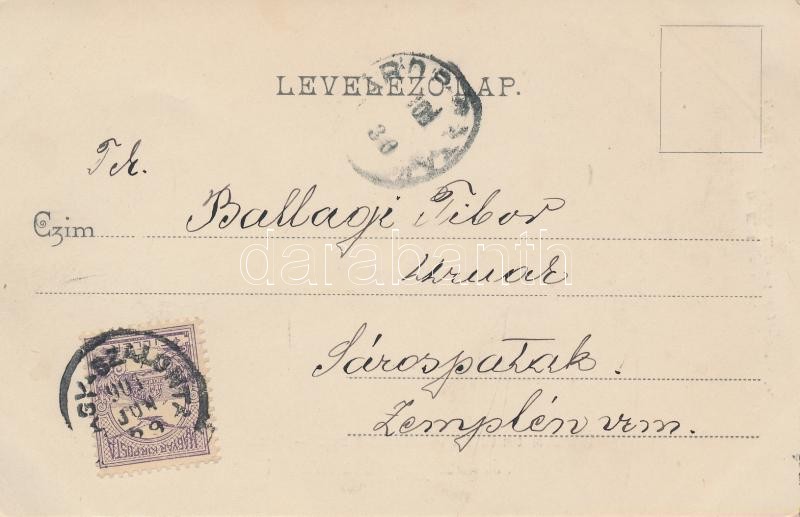 LEVELEZŐ-LAP.
Tek.
Czim Ballagi Tibor
Urnak
Sárospatak.
Zemplén vm.
darabanth
MAGYAR KIR. POSTA
JUN
29
30